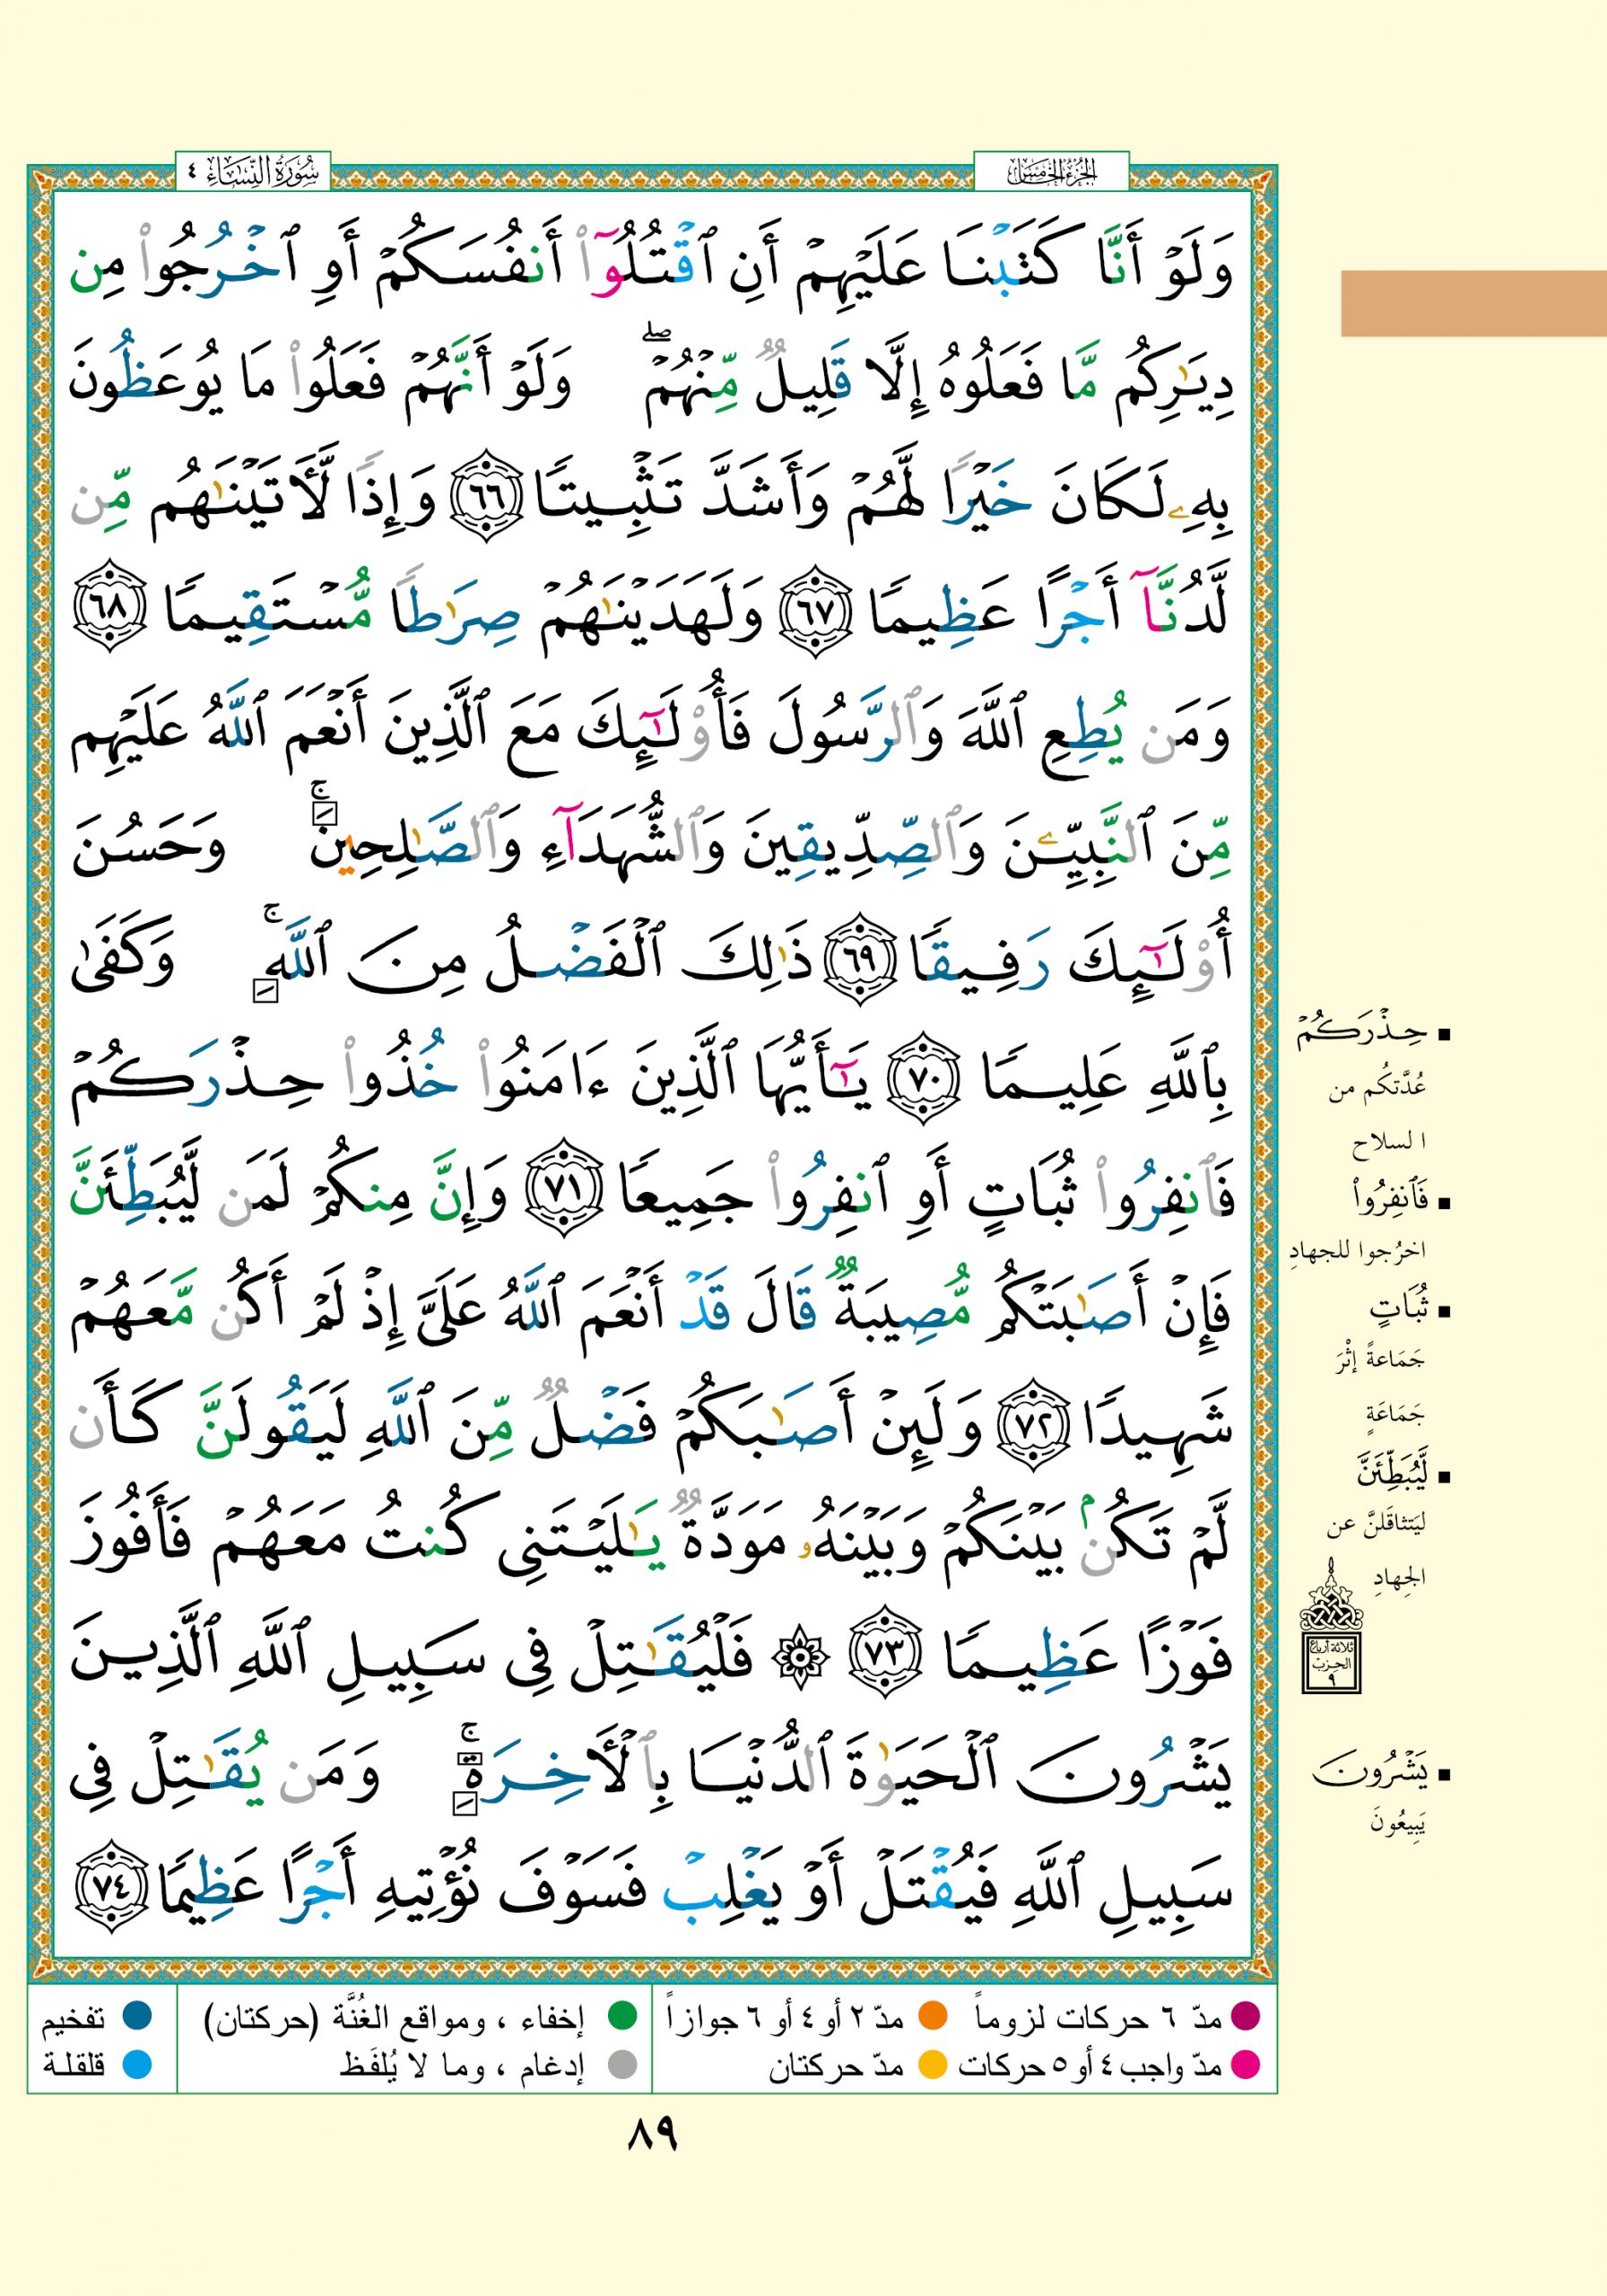 الجزء الخامس
سورة النساء ٤
وَلَوۡ أَنَّا كَتَبۡنَا عَلَيۡهِمۡ أَنِ ٱقۡتُلُوٓاْ أَنفُسَكُمۡ أَوِ ٱخۡرُجُواْ مِن
دِيَٰرِكُم مَّا فَعَلُوهُ إِلَّا قَلِيلٞ مِّنۡهُمۡۖ وَلَوۡ أَنَّهُمۡ فَعَلُواْ مَا يُوعَظُونَ
بِهِۦ لَكَانَ خَيۡرٗا لَّهُمۡ وَأَشَدَّ تَثۡبِيتٗا ٦٦ وَإِذٗا لَّأٓتَيۡنَٰهُم مِّن
لَّدُنَّآ أَجۡرًا عَظِيمٗا ٦٧ وَلَهَدَيۡنَٰهُمۡ صِرَٰطٗا مُّسۡتَقِيمٗا ٦٨
وَمَن يُطِعِ ٱللَّهَ وَٱلرَّسُولَ فَأُوْلَٰٓئِكَ مَعَ ٱلَّذِينَ أَنۡعَمَ ٱللَّهُ عَلَيۡهِم
مِّنَ ٱلنَّبِيِّـۧنَ وَٱلصِّدِّيقِينَ وَٱلشُّهَدَآءِ وَٱلصَّٰلِحِينَۚ وَحَسُنَ
أُوْلَٰٓئِكَ رَفِيقٗا ٦٩ ذَٰلِكَ ٱلۡفَضۡلُ مِنَ ٱللَّهِۚ وَكَفَىٰ
بِٱللَّهِ عَلِيمٗا ٧٠ يَٰٓأَيُّهَا ٱلَّذِينَ ءَامَنُواْ خُذُواْ حِذۡرَكُمۡ
فَٱنفِرُواْ ثُبَاتٍ أَوِ ٱنفِرُواْ جَمِيعٗا ٧١ وَإِنَّ مِنكُمۡ لَمَن لَّيُبَطِّئَنَّ
فَإِنۡ أَصَٰبَتۡكُم مُّصِيبَةٞ قَالَ قَدۡ أَنۡعَمَ ٱللَّهُ عَلَيَّ إِذۡ لَمۡ أَكُن مَّعَهُمۡ
شَهِيدٗا ٧٢ وَلَئِنۡ أَصَٰبَكُمۡ فَضۡلٞ مِّنَ ٱللَّهِ لَيَقُولَنَّ كَأَن
لَّمۡ تَكُنۢ بَيۡنَكُمۡ وَبَيۡنَهُۥ مَوَدَّةٞ يَٰلَيۡتَنِي كُنتُ مَعَهُمۡ فَأَفُوزَ
فَوۡزًا عَظِيمٗا ٧٣ ۞ فَلۡيُقَٰتِلۡ فِي سَبِيلِ ٱللَّهِ ٱلَّذِينَ
يَشۡرُونَ ٱلۡحَيَوٰةَ ٱلدُّنۡيَا بِٱلۡأٓخِرَةِۚ وَمَن يُقَٰتِلۡ فِي
سَبِيلِ ٱللَّهِ فَيُقۡتَلۡ أَوۡ يَغۡلِبۡ فَسَوۡفَ نُؤۡتِيهِ أَجۡرًا عَظِيمٗا ٧٤
▪ حِذۡرَكُمۡ
عُدَّتكُم من
السلاح
▪ فَٱنفِرُواْ
اخرُجوا للجهادِ
▪ ثُبَاتٍ
جَمَاعةً إثْرَ
جَمَاعَةٍ
▪ لَّيُبَطِّئَنَّ
ليَتثاقَلنَّ عن
الجِهادِ
ثلاثة أرباع
الحزب
٩
▪ يَشۡرُونَ
يَبِيعُونَ
مدّ ٦ حركات لزوماً
مدّ ٢ أو ٤ أو ٦ جوازاً
إخفاء ، ومواقع الغُنَّة (حركتان)
تفخيم
مدّ واجب ٤ أو ٥ حركات
مدّ حركتان
إدغام ، وما لا يُلفَظ
قلقلة
٨٩